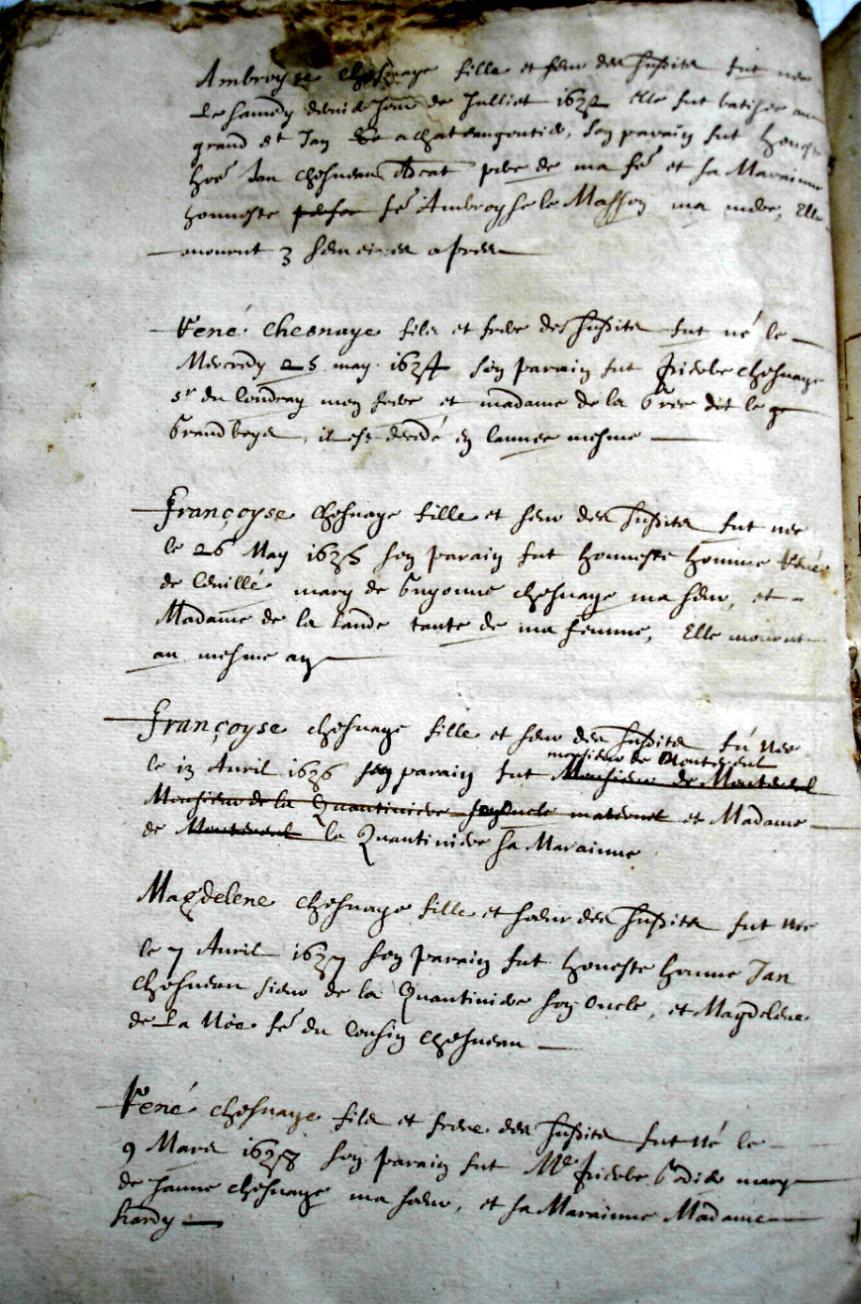 Ambroyse chesnaye fille et seur des susdits fut nee
le samedy dernier jour de Julliet 1632 elle fut batisee au
grand st Jan de achateaugontier, son parain fut honeste
hoe Jan chesneau Advocat pere de ma fe et sa Maraine
honneste fe Ambroyse le Masson ma mere, Elle
mourut 3 semeines apres
René chesnaye fils et frere des susdits fut né le
Mercredy 25 may 1634 son parain fut Pierre chesnaye
sr du Coudray mon frere et madame de la dit le
il est decedé en lannee mesme
Françoyse chesnaye fille et seur des susdits fut nee
le 26 May 1635 son parain fut honneste homme René
de Cevillé mary de Guyonne chesnaye ma seur, et
Madame de la Lande tante de ma femme, Elle mourut
au mesme an
Françoyse chesnaye fille et seur des susdits fu nee
monsieur de Montereul
le 13 Avril 1636 son parain fut Monsieur de Montereul
Monsieur de la Quantiniere son oncle maternel et Madame
de Montereul la Quantiniere sa Marainne
Magdelene chesnaye fille et soeur des susdits fut nee
le 7 Avril 1637 son parain fut honeste homme Jan
chesneau sieur de la Quantiniere son Oncle, et Magdelene
de La Noe fe du Cousin chesneau
René chesnaye fils et frere des susdits fut né le
9 Mars 1638 son parain fut Me Pierre mary
de Janne chesnaye ma soeur, et sa Marainne Madame
hardy